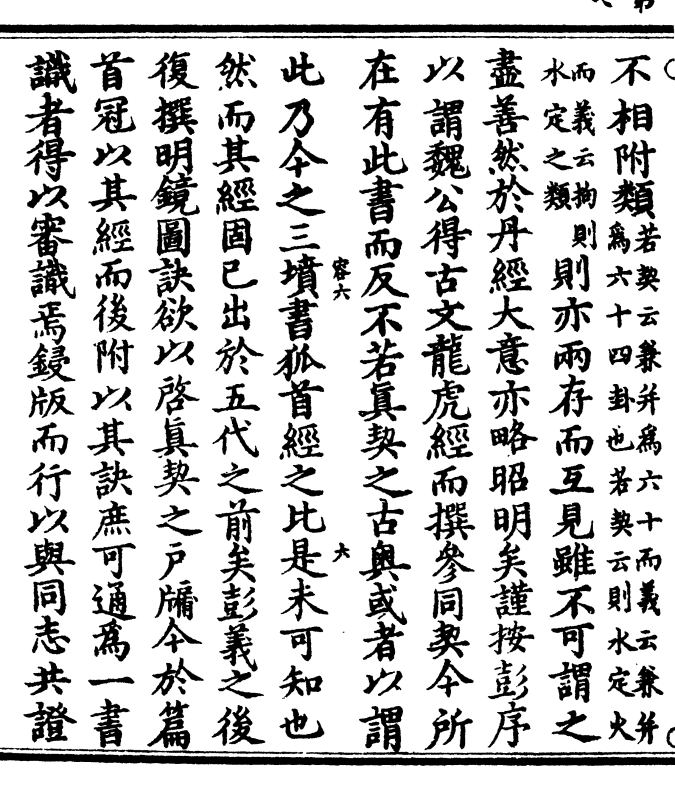 不相附類若契云兼并爲六十而義云兼并
爲六十四卦也若契云則水定火
而義云拘則
水定之類
則亦兩存而互見雖不可謂之
盡善然於丹經大意亦略昭明矣謹按彭序
以謂魏公得古文龍虎經而撰參同契今所
在有此書而反不若眞契之古奥或者以謂
容六
六
此乃今之三墳書狐首經之比是未可知也
然而其經固已出於五代之前矣彭義之後
復撰明鏡圖訣欲以啓眞契之戸牖今於篇
首冠以其經而後附以其訣庶可通爲一書
識者得以審識焉鋟版而行以與同志共證